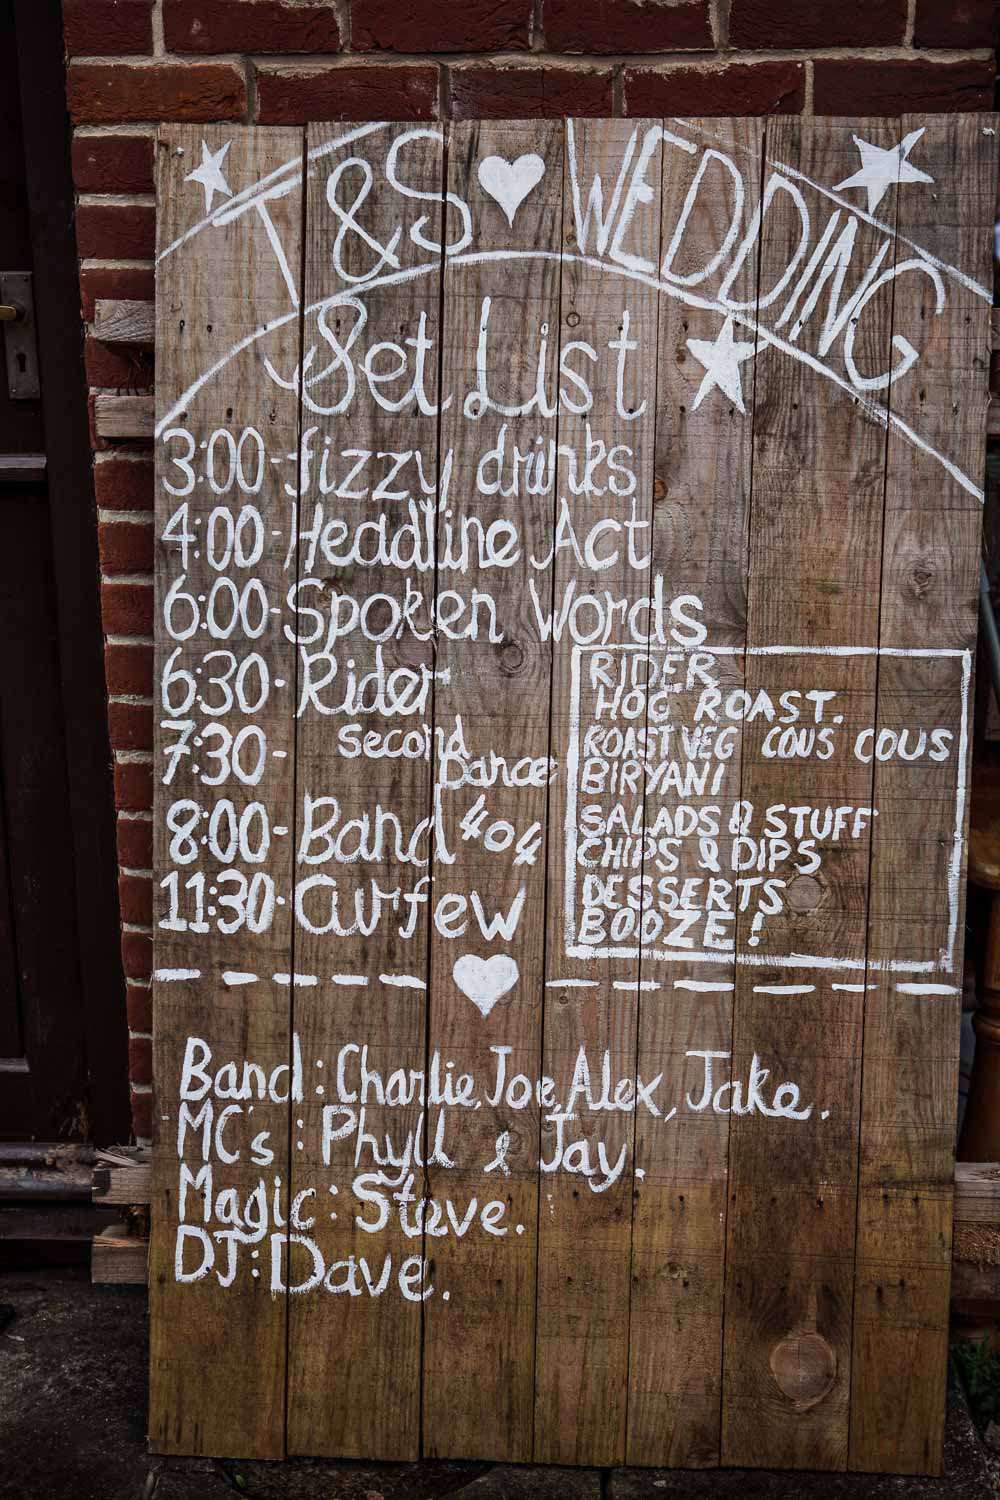 J&S ♥ WEDDING
Set List
3:00-fizzy drinks
4:00-Headline Act
6:00-Spoken Words
6:30-Rider
7:30- second Dance
8:00-Band 404
11:30-Curfew
RIDER
HOG ROAST.
ROAST VEG COUS COUS
BIRYANI
SALADS & STUFF
CHIPS & DIPS
DESSERTS
BOOZE!
Band: Charlie, Joe, Alex, Jake.
MC's: Phyll & Jay.
Magic: Steve.
DJ: Dave.